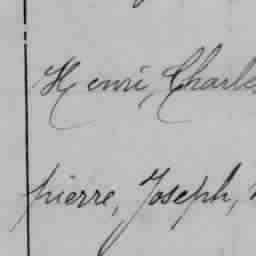 Henri, Charles
pierre, Joseph,